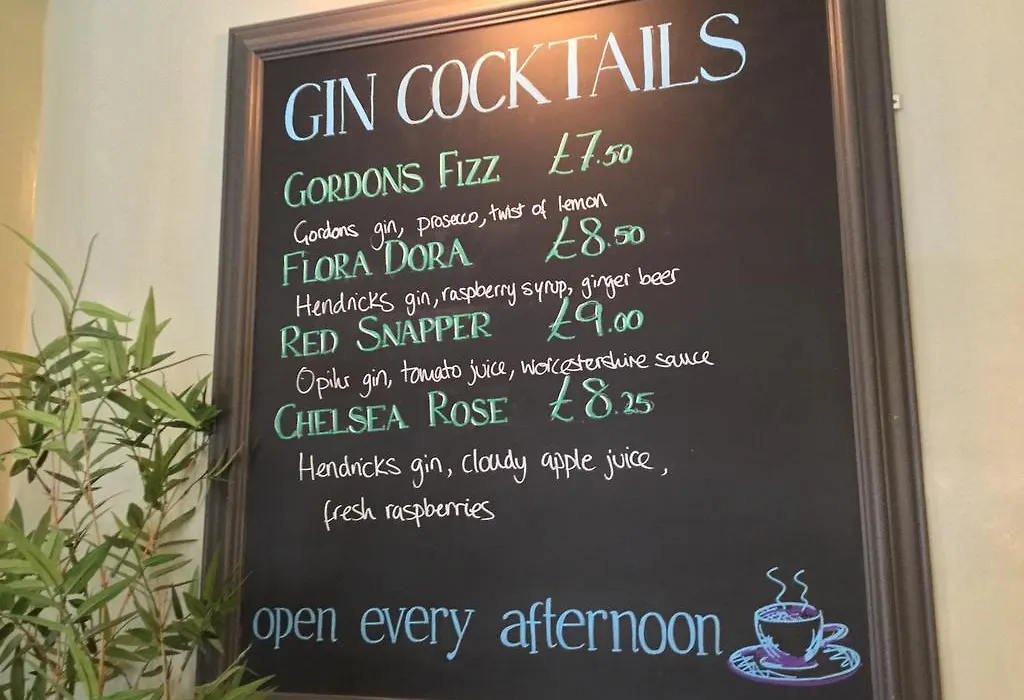 GIN COCKTAILS
GORDONS FIZZ £7.50
Gordons gin, prosecco, twist of lemon
FLORA DORA £8.50
Hendricks gin, raspberry syrup, ginger beer
RED SNAPPER £9.00
Opihr gin, tomato juice, worcestershire sauce
CHELSEA ROSE £8.25
Hendricks gin, cloudy apple juice,
fresh raspberries
open every afternoon